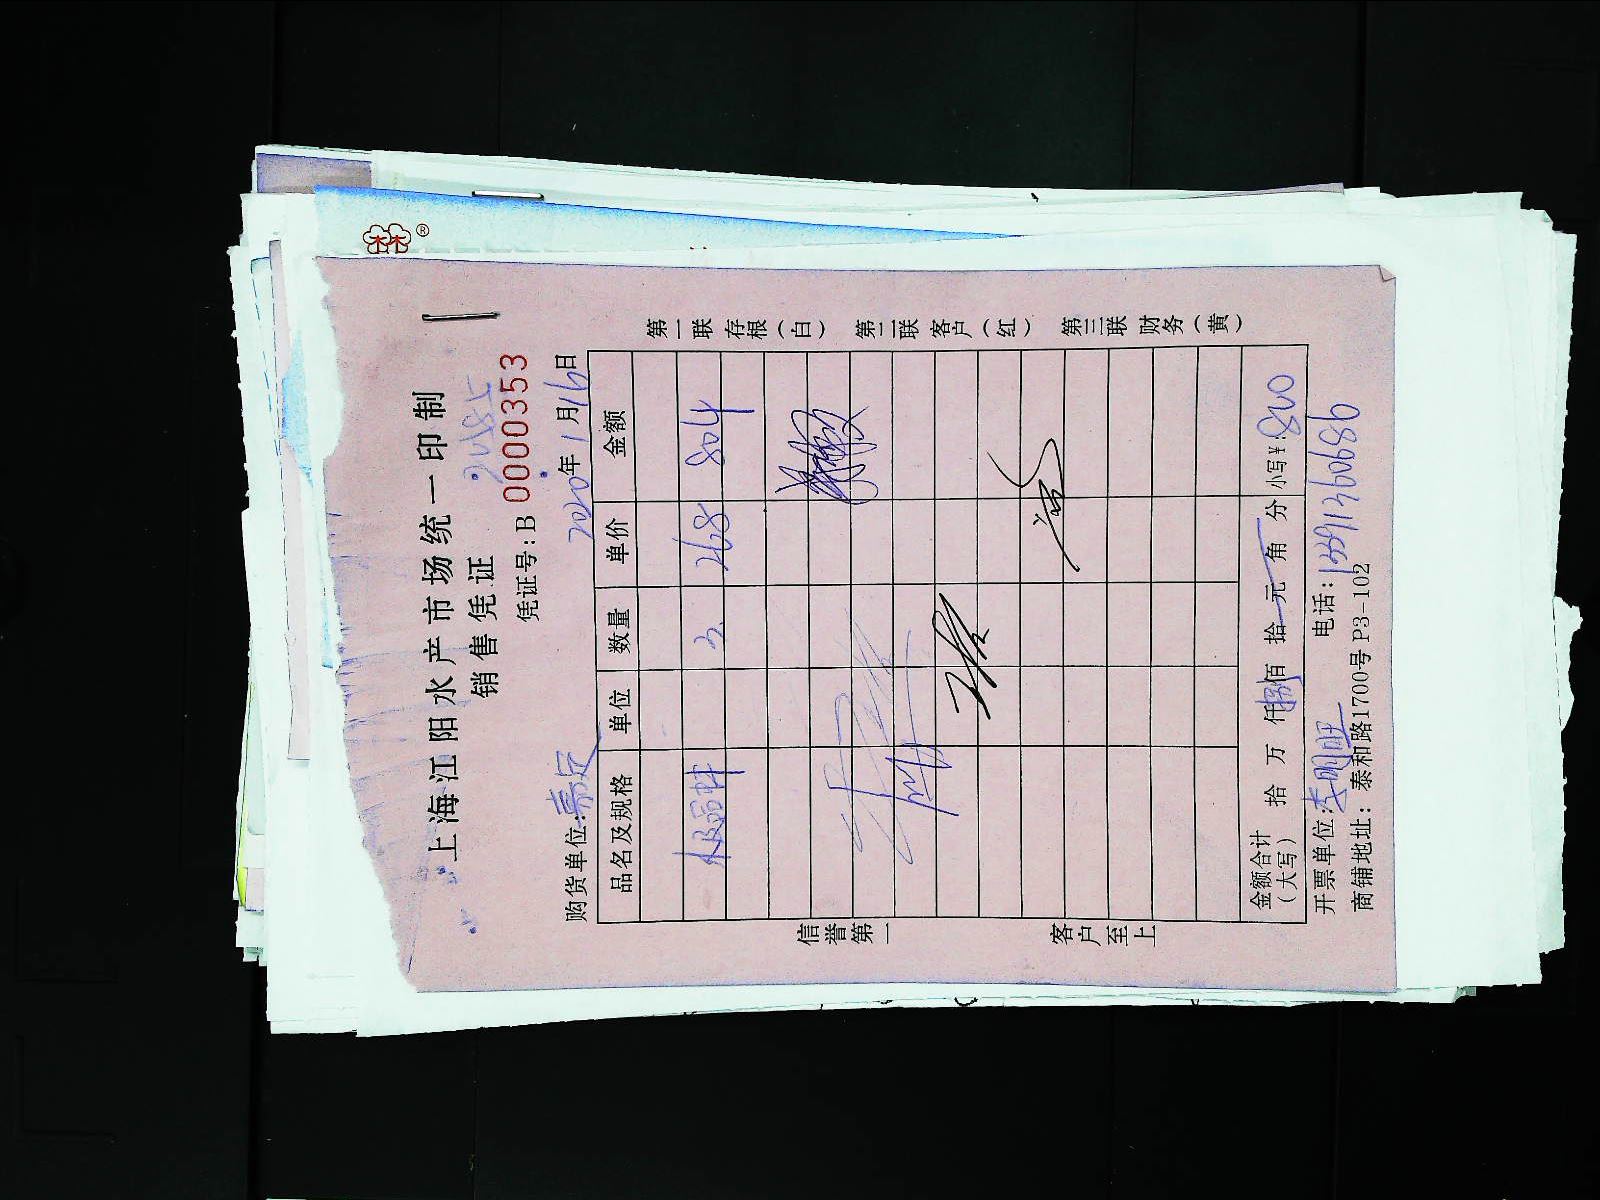 上海江阳水产市场统一印制
销售凭证
凭证号:B 0000353
购货单位:嘉定
2020年1月16日
品名及规格 单位 数量 单价 金额
极品虾 3 268 804
金额合计(大写) 拾 万 仟捌佰 拾 元 角 分 小写¥:800
开票单位: 电话:
商铺地址:泰和路1700号P3-102
第一联 存根(白) 第二联 客户(红) 第三联 财务(黄)
信誉第一
客户至上
林林®